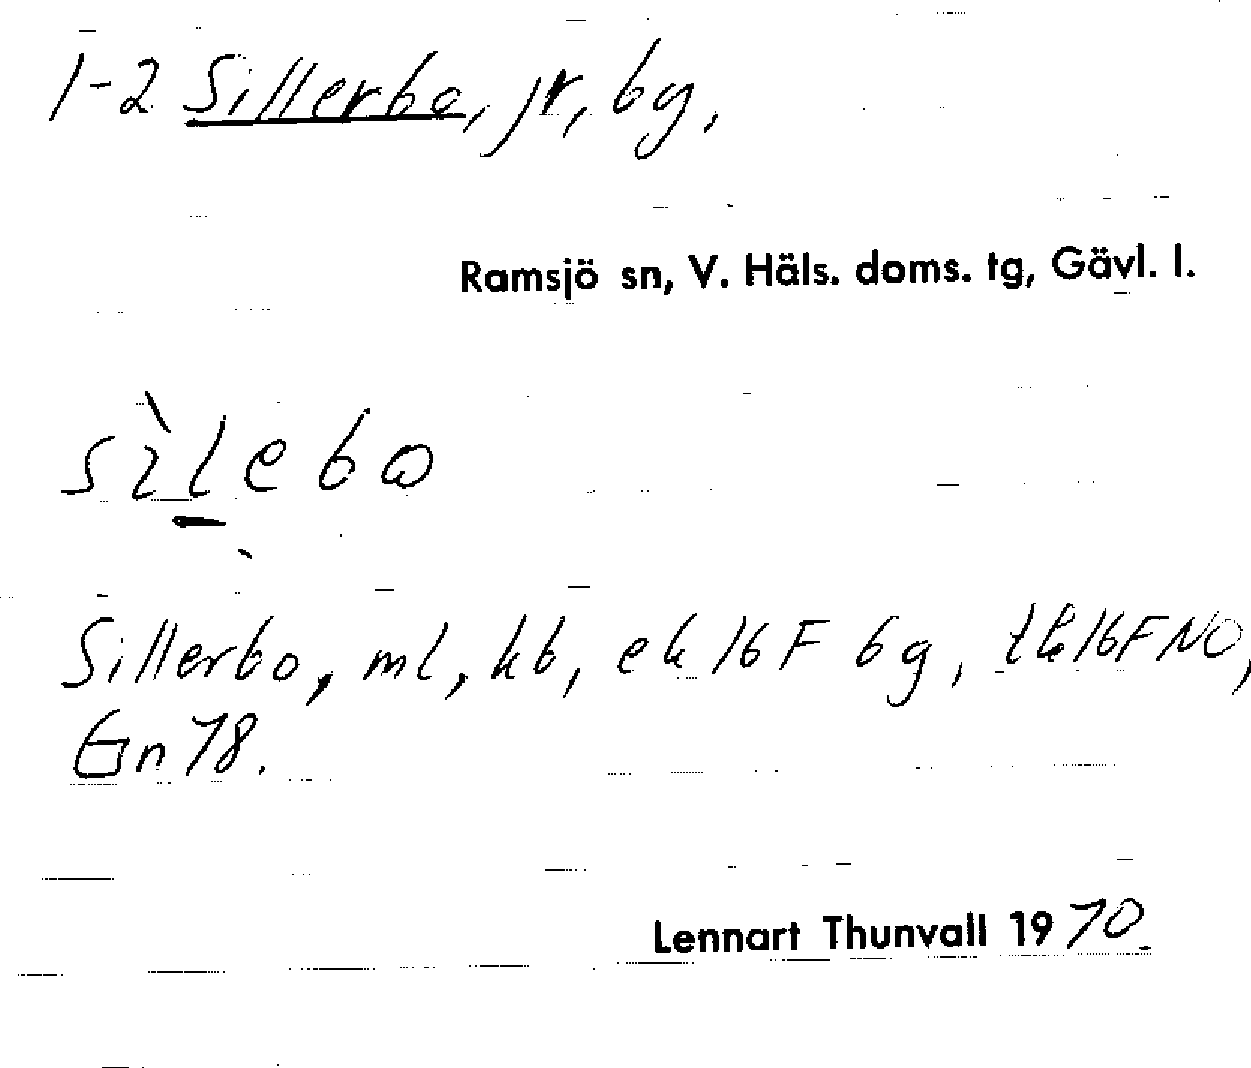 1-2 Sillerbo, jr, by,
Ramsjö sn, V. Häls. doms. tg, Gävl. l.
sìlebω
Sillerbo, ml, kb, ek 16 F by, tk 16F NO,
Gn 78.
Lennart Thunvall 1970